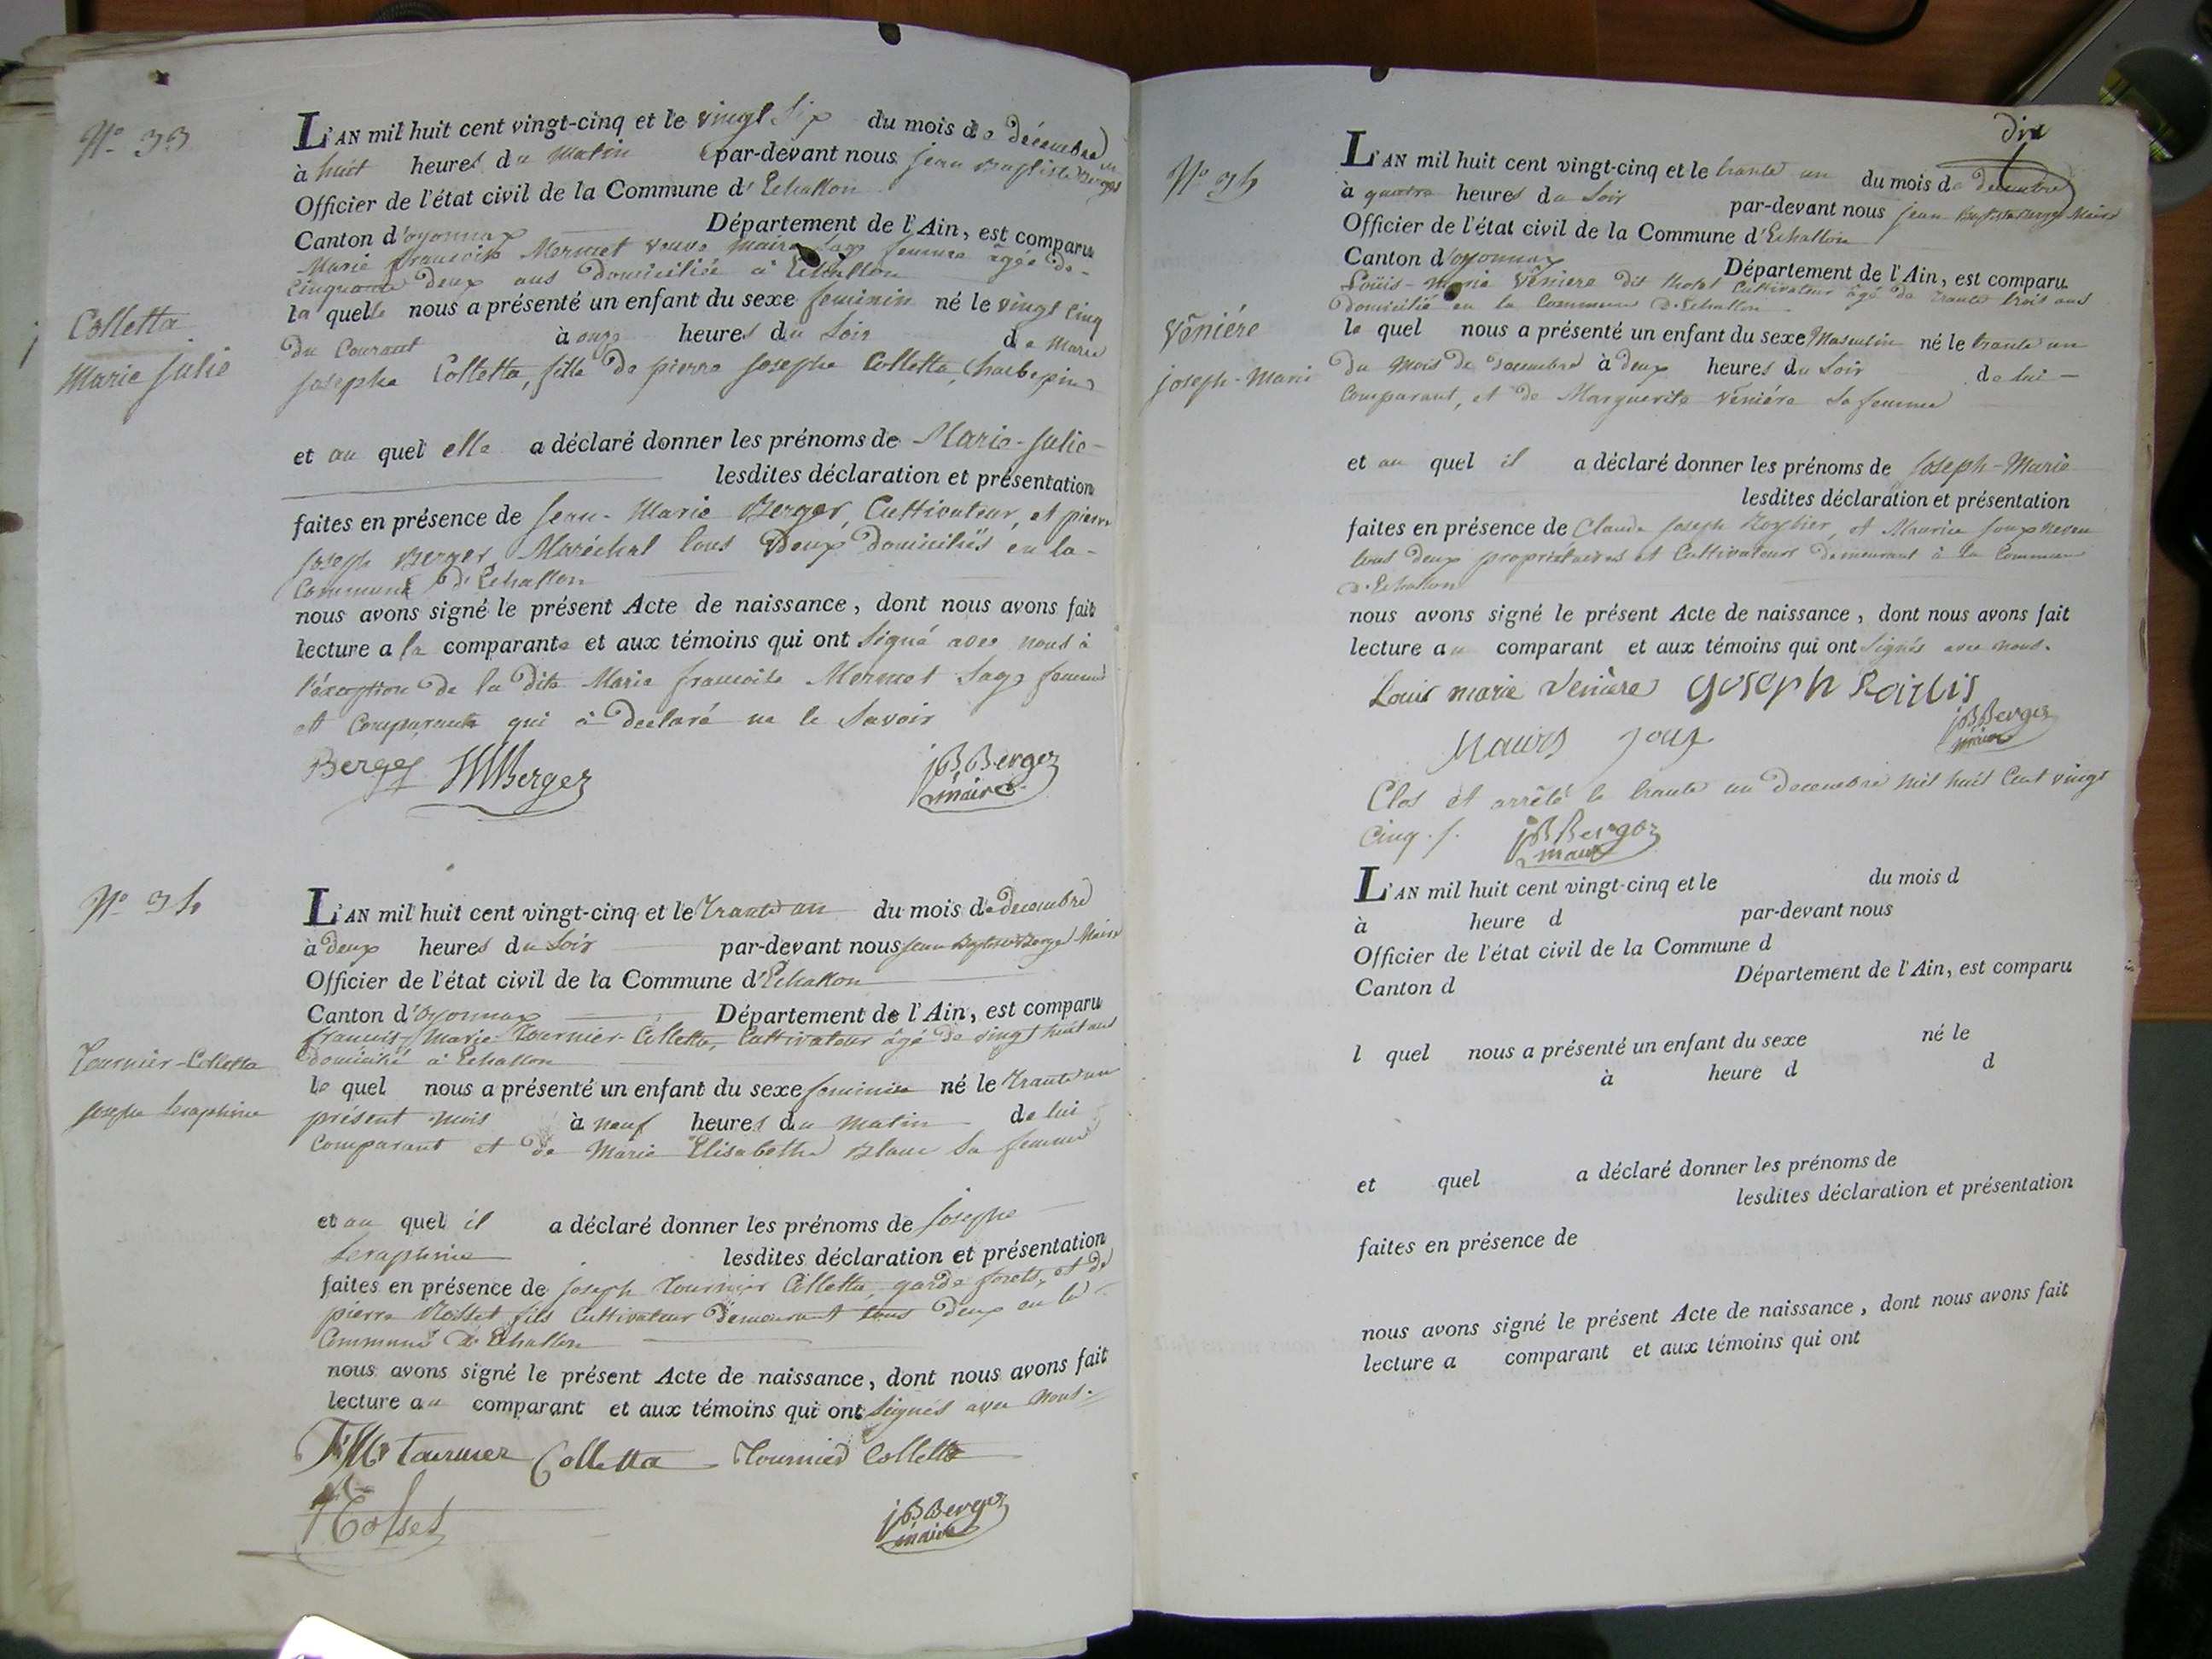 N.° 33
L'AN mil huit cent vingt-cinq et le vingt Six du mois de décembre
à huit heures du Matin par-devant nous jean Baptiste Berger
Officier de l'état civil de la Commune d'Echallon
Canton d'oyonnax Département de l'Ain, est comparu
Marie francoise Mermet veuve Maire Sage femme âgée de
Cinquante deux ans domiciliée à Echallon
la quelle nous a présenté un enfant du sexe feminin né le vingt Cinq
Colletta
du Courant à onze heures du Soir de Marie
Marie Julie
Josephe Colletta, fille de pierre Josephe Colletta,
et au quel elle a déclaré donner les prénoms de Marie-Julie
lesdites déclaration et présentation
faites en présence de Jean-Marie Berger, Cultivateur, et pierre
Joseph Berger Maréchal tous Deux Domiciliés en la
Commune d'Echallon
nous avons signé le présent Acte de naissance, dont nous avons fait
lecture a la comparante et aux témoins qui ont Signé avec nous à
l'éxception de la dite Marie francoise Mermet Sage femme
et Comparante qui à declaré ne le Savoir
Berger JMBerger jBBerger
maire
N.° 34
L'AN mil huit cent vingt-cinq et le trante un du mois de decembre
à deux heures du Soir par-devant nous Jean Baptiste Berger Maire
Officier de l'état civil de la Commune d'Echallon
Canton d'Oyonnax Département de l'Ain, est comparu
francois Marie Tournier-Colletta, Cultivateur âgé de vingt huit ans
domicilié à Echallon
Tournier-Colletta
le quel nous a présenté un enfant du sexe feminin né le trante un
Josephe Seraphine
présent mois à neuf heures du matin de lui
Comparant et de Marie Elisabethe Blanc Sa femme
et au quel il a déclaré donner les prénoms de Josephe
Seraphine lesdites déclaration et présentation
faites en présence de Joseph Tournier Colletta, garde forets, et de
pierre fils Cultivateur demeurant tous deux en la
Commune d'Echallon
nous avons signé le présent Acte de naissance, dont nous avons fait
lecture au comparant et aux témoins qui ont Signés avec nous.
Tournier Colletta Tournier Colletta
jBBerger
maire
dix
L'AN mil huit cent vingt-cinq et le trante un du mois de decembre
à quatre heures du Soir par-devant nous jean Baptiste Berger Maire
Officier de l'état civil de la Commune d'Echallon
Canton d'oyonnax Département de l'Ain, est comparu
Loüis-marie Vêniere dit Cultivateur âgé de trante trois ans
domicilié en la Commune d'Echallon
Vêniére
le quel nous a présenté un enfant du sexe Masculin né le trante un
joseph-Marie
du Mois de decembre à deux heures du Soir de lui
Comparant, et de Marguerite Vêniére Sa femme
et au quel il a déclaré donner les prénoms de Joseph-Marie
lesdites déclaration et présentation
faites en présence de Claude Joseph et Maurice Joux
tous deux propriétaires et Cultivateurs demeurant à la Commune
d'Echallon
nous avons signé le présent Acte de naissance, dont nous avons fait
lecture au comparant et aux témoins qui ont Signés avec nous.
Louis marie Venière joseph
Joux jBBerger
maire
Clos et arrêté le trante un decembre mil huit Cent vingt
Cinq. jBBerger
maire
L'AN mil huit cent vingt-cinq et le du mois d
à heure d par-devant nous
Officier de l'état civil de la Commune d
Canton d Département de l'Ain, est comparu
l quel nous a présenté un enfant du sexe né le
à heure d d
et quel a déclaré donner les prénoms de
lesdites déclaration et présentation
faites en présence de
nous avons signé le présent Acte de naissance, dont nous avons fait
lecture a comparant et aux témoins qui ont